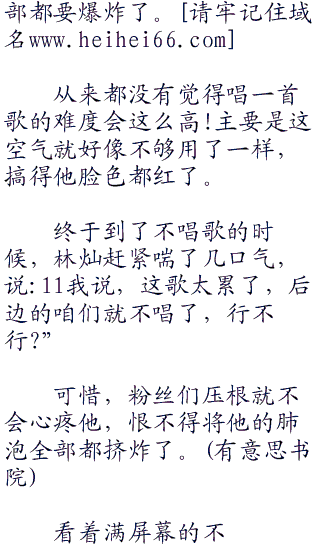 部都要爆炸了。[请牢记住域
名www.heihei66.com]
从来都没有觉得唱一首
歌的难度会这么高!主要是这
空气就好像不够用了一样，
搞得他脸色都红了。
终于到了不唱歌的时
候，林灿赶紧喘了几口气，
说:11我说，这歌太累了，后
边的咱们就不唱了，行不
行?”
可惜，粉丝们压根就不
会心疼他，恨不得将他的肺
泡全部都挤炸了。(有意思书
院)
看着满屏幕的不